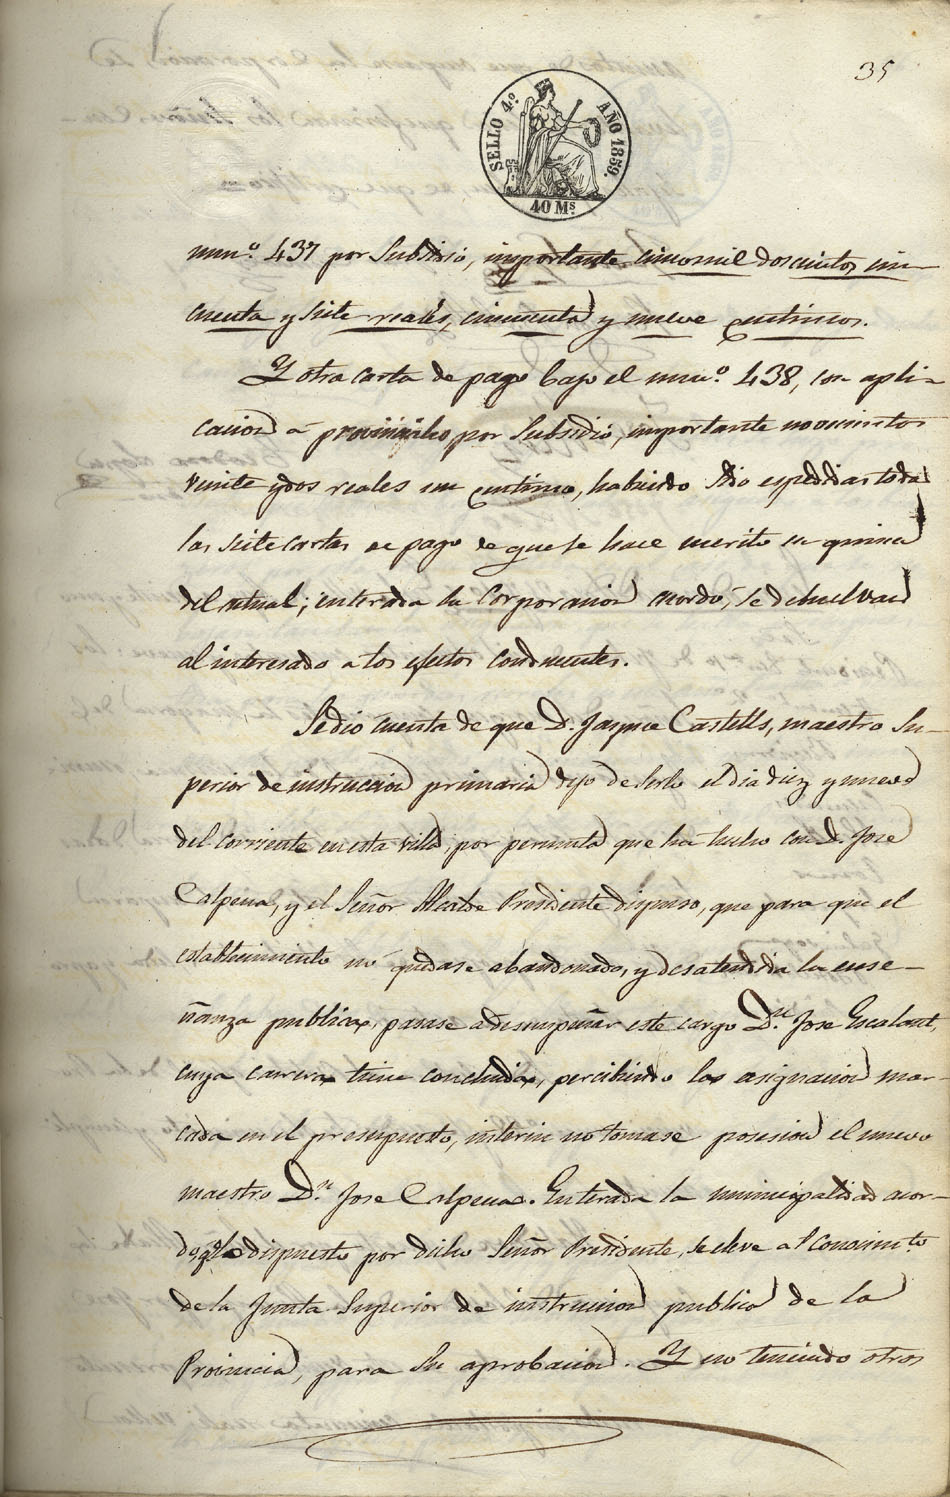 35
SELLO 4.º AÑO 1859.
40 Ms.
num.º 437 por Subsidio, importante cincomil doscientos cin-
cuenta y siete reales, cincuenta y nueve centimos.
Y otra carta de pago bajo el num.º 438, con apli-
cacion á provinciales por Subsidio, importante novecientos
veinte y dos reales un centimo, habiendo sido espedidas todas
las siete cartas de pago de que se hace merito en quince
del actual; enterada la Corporacion acordó, se debuelvan
al interesado a los efectos conducentes.
Se dio cuenta de que D. Jayme Castells, maestro Su-
perior de instruccion primaria dejo de serlo el dia diez y nueve
del corriente en esta villa, por permuta que ha hecho con D. Jose
Calpena, y el Señor Alcalde Presidente dispuso, que para que el
establecimiento no quedase abandonado, y desatendida la ense-
ñanza publica, pasase a desempeñar este cargo D.n Jose Escalant,
cuya carrera tiene concluida, percibiendo las asignacion mar-
cada en el presupuesto, interin no tomase posesion el nuevo
maestro D.n Jose Calpena. Enterada la municipalidad acor-
dó q.e lo dispuesto por dicho Señor Presidente, se eleve al conocim.to
de la Junta Superior de instruccion publica de la
Provincia, para su aprobacion. Y no teniendo otros